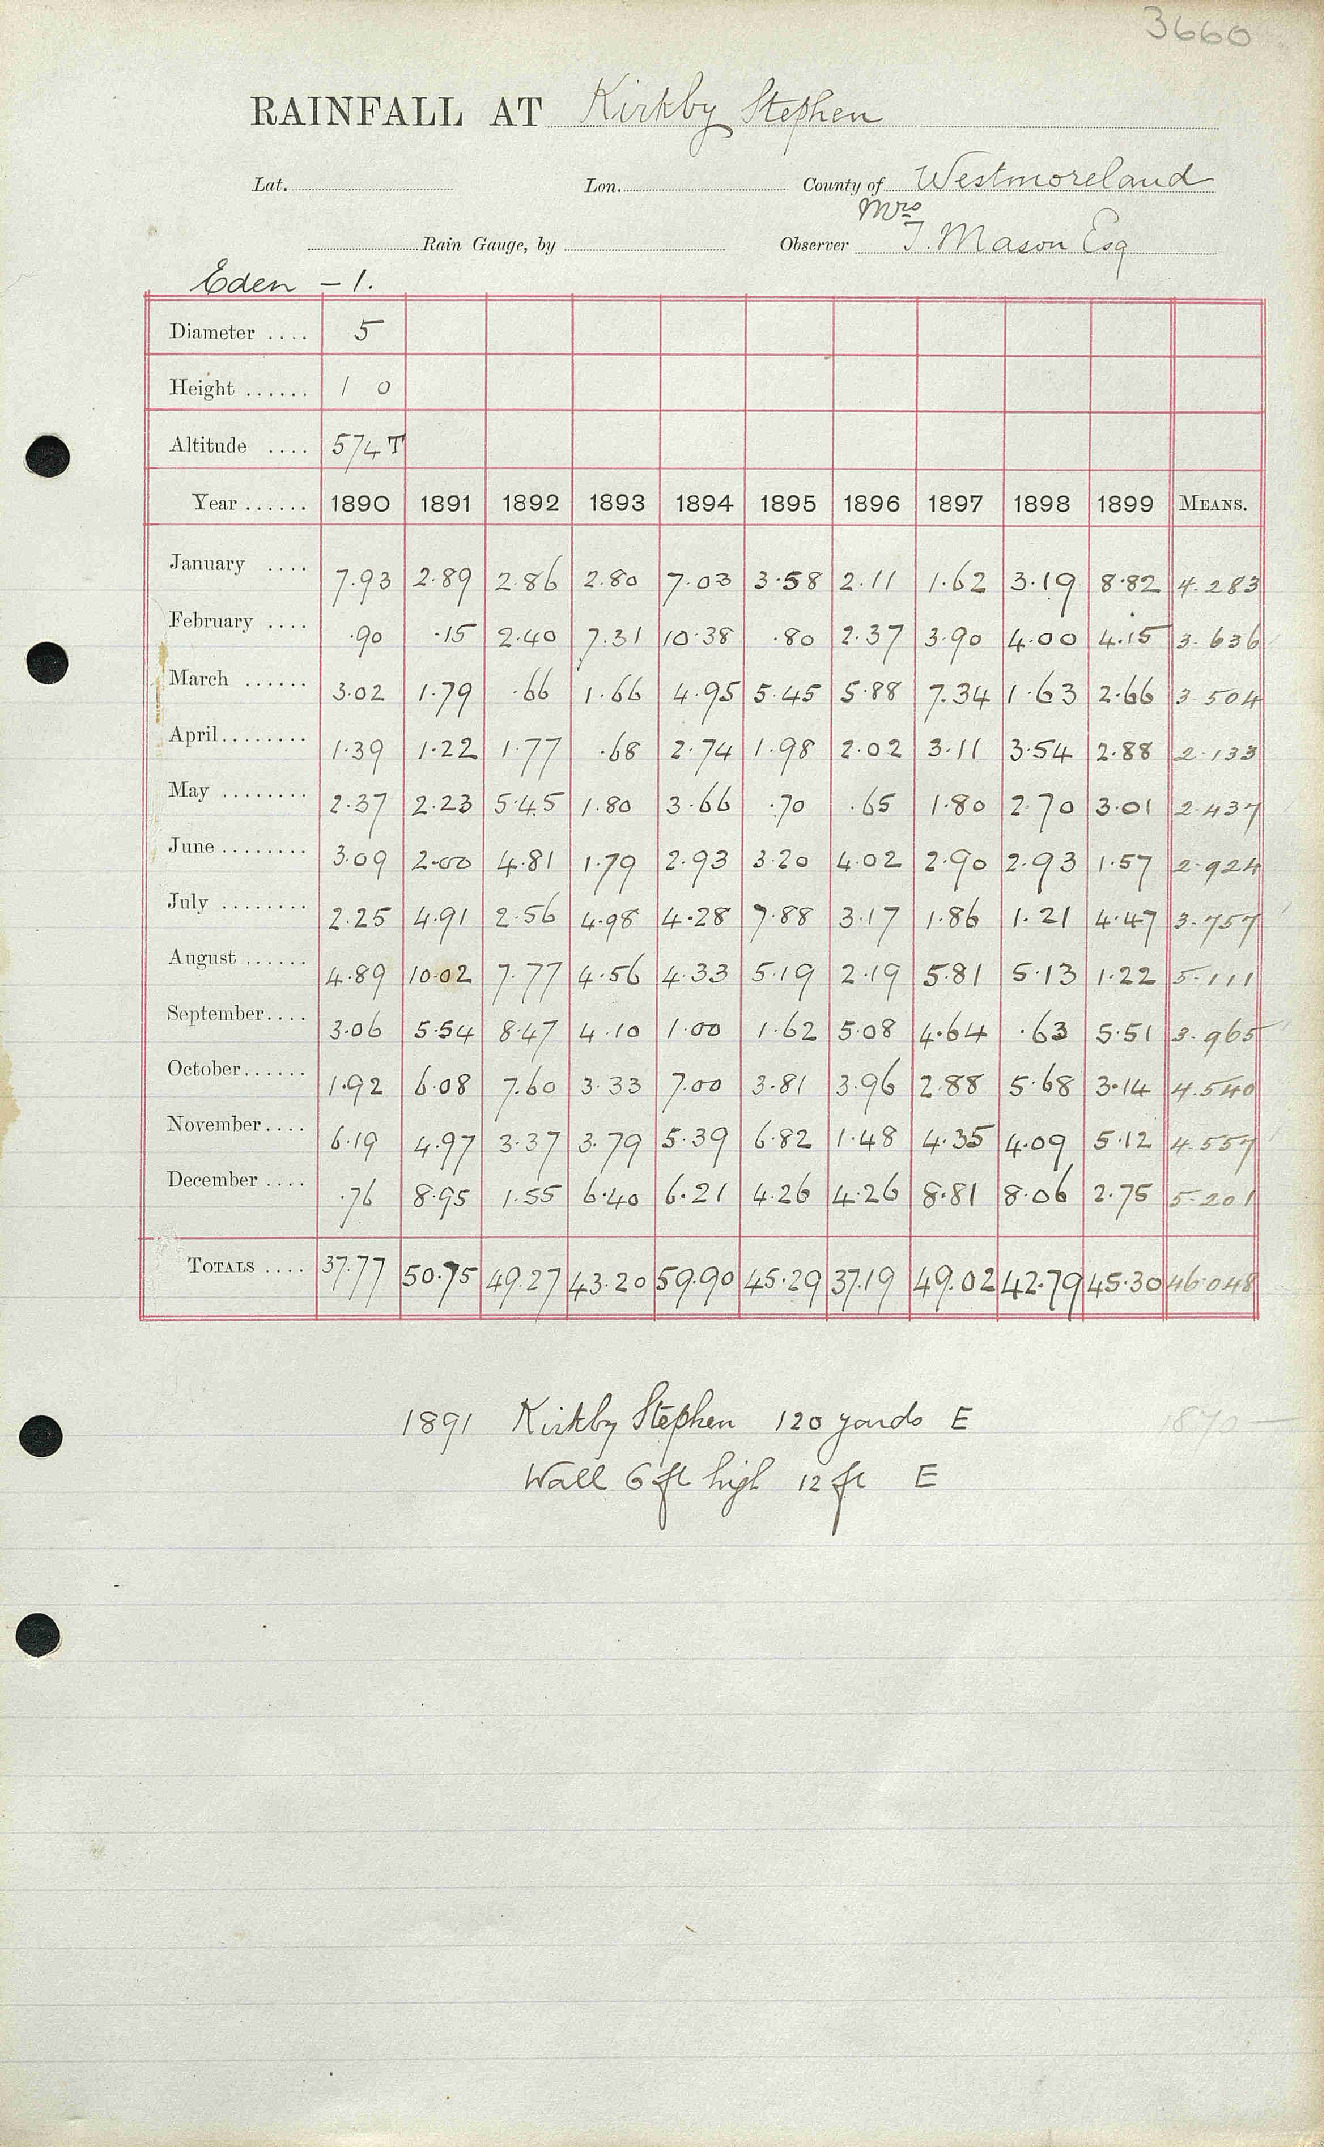 3660
RAINFALL AT Kirkby Stephen
Lat. Lon. County of Westmoreland
Mrs
Rain Gauge, by Observer T. Mason Esq
Eden - 1.
Diameter .... 5
Height ...... 1 0
Altitude .... 574 T
Year ...... 1890 1891 1892 1893 1894 1895 1896 1897 1898 1899 MEANS.
January .... 7.93 2.89 2.86 2.80 7.03 3.58 2.11 1.62 3.19 8.82 4.283
February .... .90 .15 2.40 7.31 10.38 .80 2.37 3.90 4.00 4.15 3.636
March ...... 3.02 1.79 .66 1.66 4.95 5.45 5.88 7.34 1.63 2.66 3.504
April........ 1.39 1.22 1.77 .68 2.74 1.98 2.02 3.11 3.54 2.88 2.133
May ........ 2.37 2.23 5.45 1.80 3.66 .70 .65 1.80 2.70 3.01 2.437
June ........ 3.09 2.00 4.81 1.79 2.93 3.20 4.02 2.90 2.93 1.57 2.924
July ........ 2.25 4.91 2.56 4.98 4.28 7.88 3.17 1.86 1.21 4.47 3.757
August ...... 4.89 10.02 7.77 4.56 4.33 5.19 2.19 5.81 5.13 1.22 5.111
September.... 3.06 5.54 8.47 4.10 1.00 1.62 5.08 4.64 .63 5.51 3.965
October...... 1.92 6.08 7.60 3.33 7.00 3.81 3.96 2.88 5.68 3.14 4.540
November.... 6.19 4.97 3.37 3.79 5.39 6.82 1.48 4.35 4.09 5.12 4.557
December .... .76 8.95 1.55 6.40 6.21 4.26 4.26 8.81 8.06 2.75 5.201
TOTALS .... 37.77 50.75 49.27 43.20 59.90 45.29 37.19 49.02 42.79 45.30 46.048
1891 Kirkby Stephen 120 yards E
1870 -
Wall 6 ft high 12 ft E